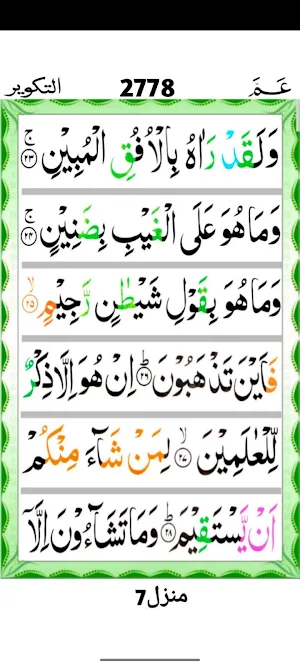 عَمَّ 2778 التكوير
وَلَقَدْ رَاٰهُ بِالْاُفُقِ الْمُبِيْنِ ۚ﴿۲۳﴾
وَمَا هُوَ عَلَى الْغَيْبِ بِضَنِيْنٍ ۚ﴿۲۴﴾
وَمَا هُوَ بِقَوْلِ شَيْطٰنٍ رَّجِيْمٍ ۙ﴿۲۵﴾
فَاَيْنَ تَذْهَبُوْنَ ؕ﴿۲۶﴾ اِنْ هُوَ اِلَّا ذِكْرٌ
لِّلْعٰلَمِيْنَ ۙ﴿۲۷﴾ لِمَنْ شَآءَ مِنْكُمْ
اَنْ يَّسْتَقِيْمَ ؕ﴿۲۸﴾ وَمَا تَشَآءُوْنَ اِلَّاۤ
منزل7